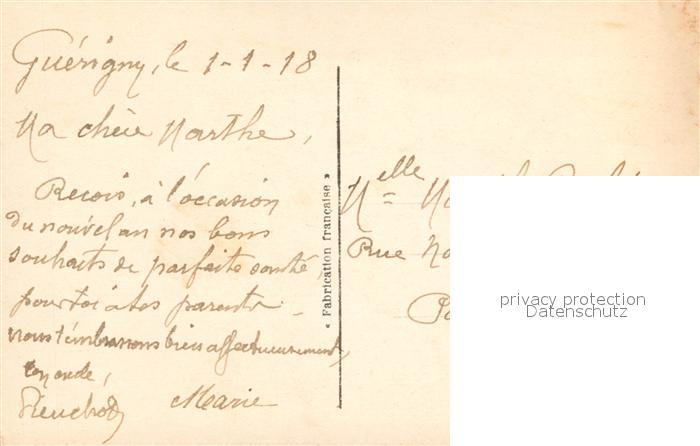 Guérigny, le 1-1-18
Ma chère Marthe,
Reçois, à l'occasion
du nouvel an nos bons
souhaits de parfaite santé,
pour toi & tes parents.
nous t'embrassons bien affectueusement,
ton oncle,
Marie
« Fabrication française »
Melle
Rue
privacy protection
Datenschutz